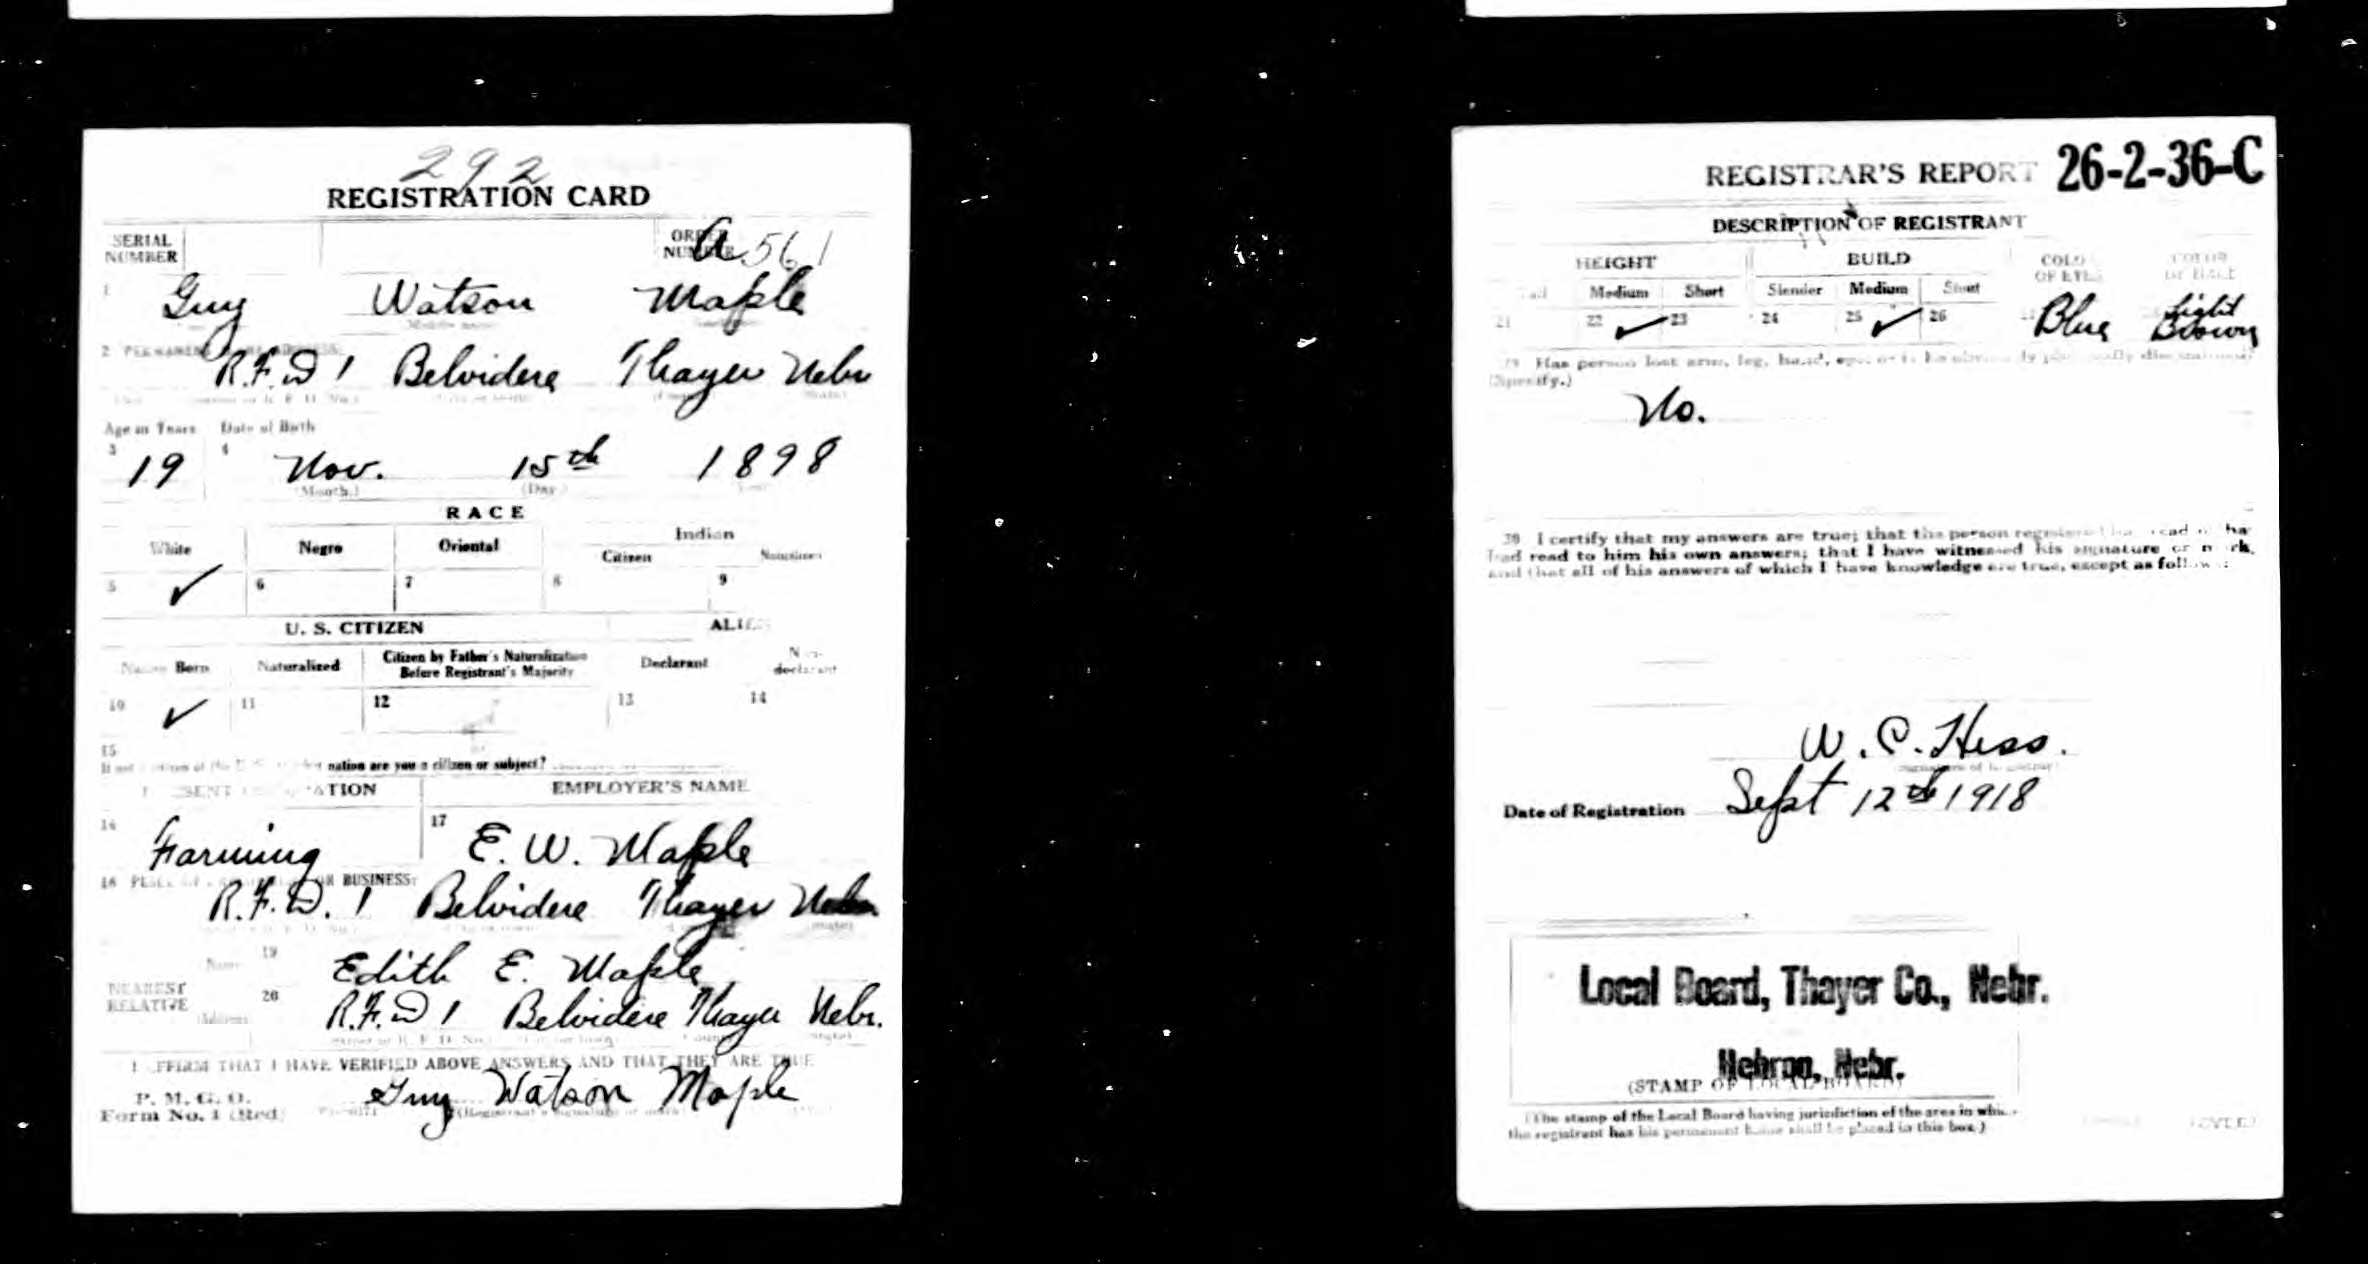 292
REGISTRATION CARD
SERIAL NUMBER
ORDER NUMBER A 561
1 Guy Watson Maple
2 PERMANENT HOME ADDRESS:
R.F.D 1 Belvidere Thayer Nebr
Age in Years Date of Birth
3 19 4 Nov. 15th 1898
(Month.) (Day.)
RACE
White Negro Oriental Indian
Citizen Noncitizen
5 ✓ 6 7 8 9
U. S. CITIZEN ALIEN
Native Born Naturalized Citizen by Father's Naturalization Before Registrant's Majority Declarant Non-declarant
10 ✓ 11 12 13 14
15
nation are you a citizen or subject?
PRESENT OCCUPATION EMPLOYER'S NAME
16 Farming 17 E. W. Maple
18 PLACE OF OR BUSINESS:
R.F.D. 1 Belvidere Thayer Nebr
NEAREST RELATIVE
Name 19 Edith E. Maple
Address 20 R.F.D 1 Belvidere Thayer Nebr.
I AFFIRM THAT I HAVE VERIFIED ABOVE ANSWERS AND THAT THEY ARE TRUE
P. M. G. O.
Form No. 1 (Red) Guy Watson Maple
(Registrant's signature or mark)
REGISTRAR'S REPORT 26-2-36-C
DESCRIPTION OF REGISTRANT
HEIGHT BUILD COLOR OF EYES COLOR OF HAIR
Tall Medium Short Slender Medium Stout
21 22 ✓ 23 24 25 ✓ 26 Blue Light Brown
29 Has person lost arm, leg, hand, eye, or is he obviously physically disqualified?
(Specify.)
No.
30 I certify that my answers are true; that the person registered has read or has
had read to him his own answers; that I have witnessed his signature or mark,
and that all of his answers of which I have knowledge are true, except as follows:
W. C. Hess.
(Signature of Registrar)
Date of Registration Sept 12th 1918
Local Board, Thayer Co., Nebr.
Hebron, Nebr.
(STAMP OF LOCAL BOARD)
(The stamp of the Local Board having jurisdiction of the area in which
the registrant has his permanent home shall be placed in this box.)
(OVER)